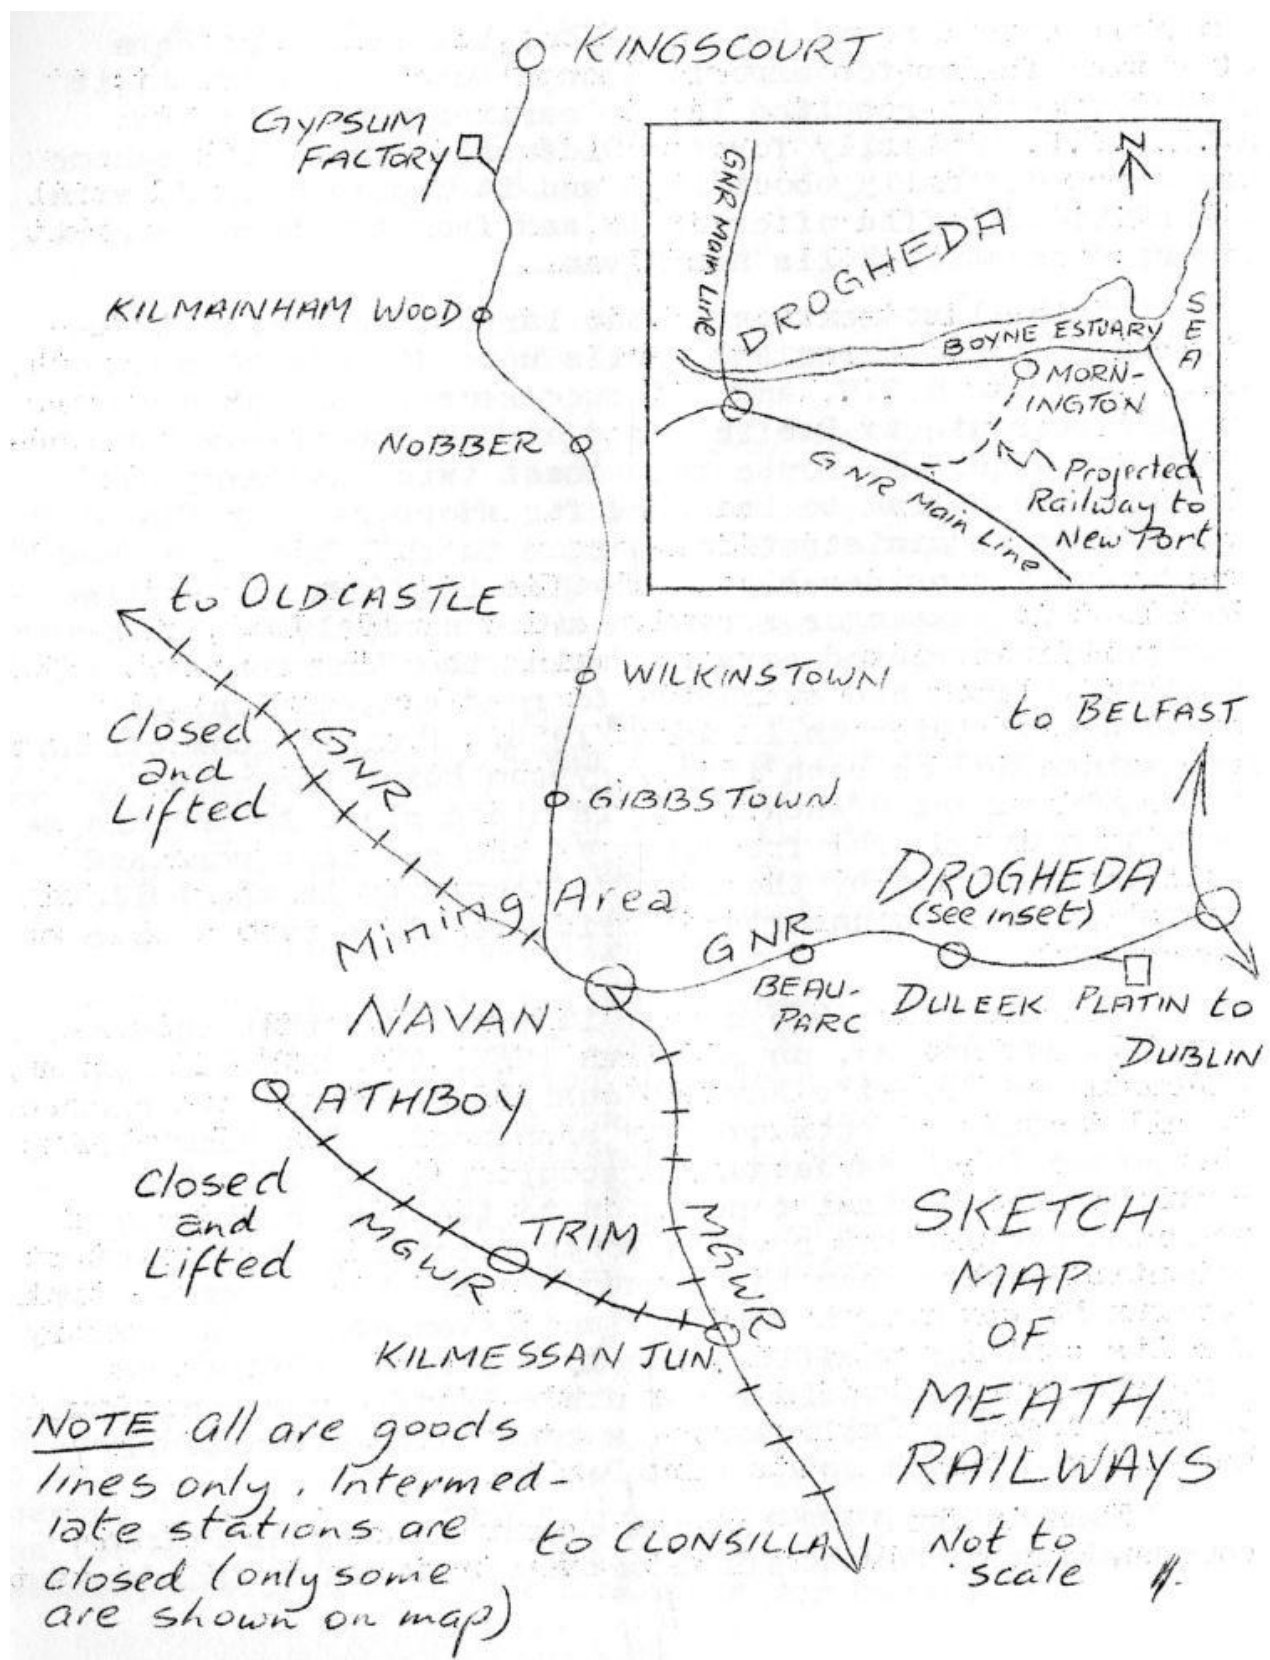 KINGSCOURT
GYPSUM
FACTORY
KILMAINHAM WOOD
NOBBER
N
GNR Main Line
DROGHEDA
BOYNE ESTUARY
SEA
MORN-
INGTON
GNR Main Line
Projected
Railway to
New Port
to OLDCASTLE
WILKINSTOWN
to BELFAST
Closed
and
Lifted
GNR
GIBBSTOWN
DROGHEDA
(see inset)
Mining Area
GNR
NAVAN
BEAU-
PARC
DULEEK
PLATIN
to
DUBLIN
ATHBOY
Closed
and
Lifted
MGWR
TRIM
MGWR
KILMESSAN JUN.
SKETCH
MAP
OF
MEATH
RAILWAYS
Not to
scale
NOTE all are goods
lines only. Intermed-
iate stations are
closed (only some
are shown on map)
to CLONSILLA